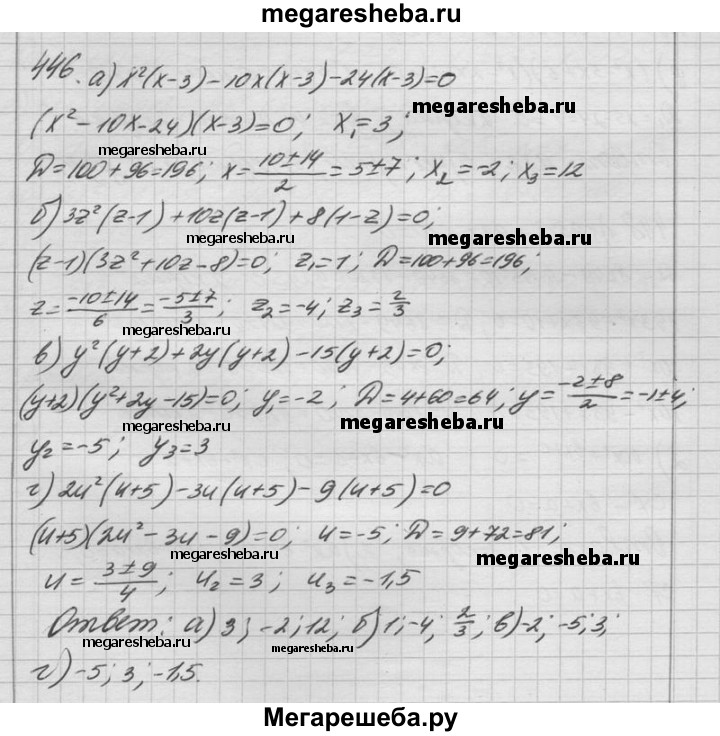 megaresheba.ru
446. а) x²(x-3)-10x(x-3)-24(x-3)=0
megaresheba.ru
(x²-10x-24)(x-3)=0; x₁=3;
megaresheba.ru
D=100+96=196; x=(10±14)/2=5±7; x₂=-2; x₃=12
б) 3z²(z-1)+10z(z-1)+8(1-z)=0;
megaresheba.ru
(z-1)(3z²+10z-8)=0; z₁=1; D=100+96=196;
megaresheba.ru
z=(-10±14)/6=(-5±7)/3; z₂=-4; z₃=2/3
megaresheba.ru
в) y²(y+2)+2y(y+2)-15(y+2)=0;
(y+2)(y²+2y-15)=0; y₁=-2; D=4+60=64; y=(-2±8)/2=-1±4;
megaresheba.ru megaresheba.ru
y₂=-5; y₃=3
г) 2u²(u+5)-3u(u+5)-9(u+5)=0
(u+5)(2u²-3u-9)=0; u=-5; D=9+72=81;
megaresheba.ru megaresheba.ru
u=(3±9)/4; u₂=3; u₃=-1,5
Ответ: а) 3; -2; 12; б) 1; -4; 2/3; в) -2; -5; 3;
megaresheba.ru megaresheba.ru
г) -5; 3; -1,5.
Мегарешеба.ру